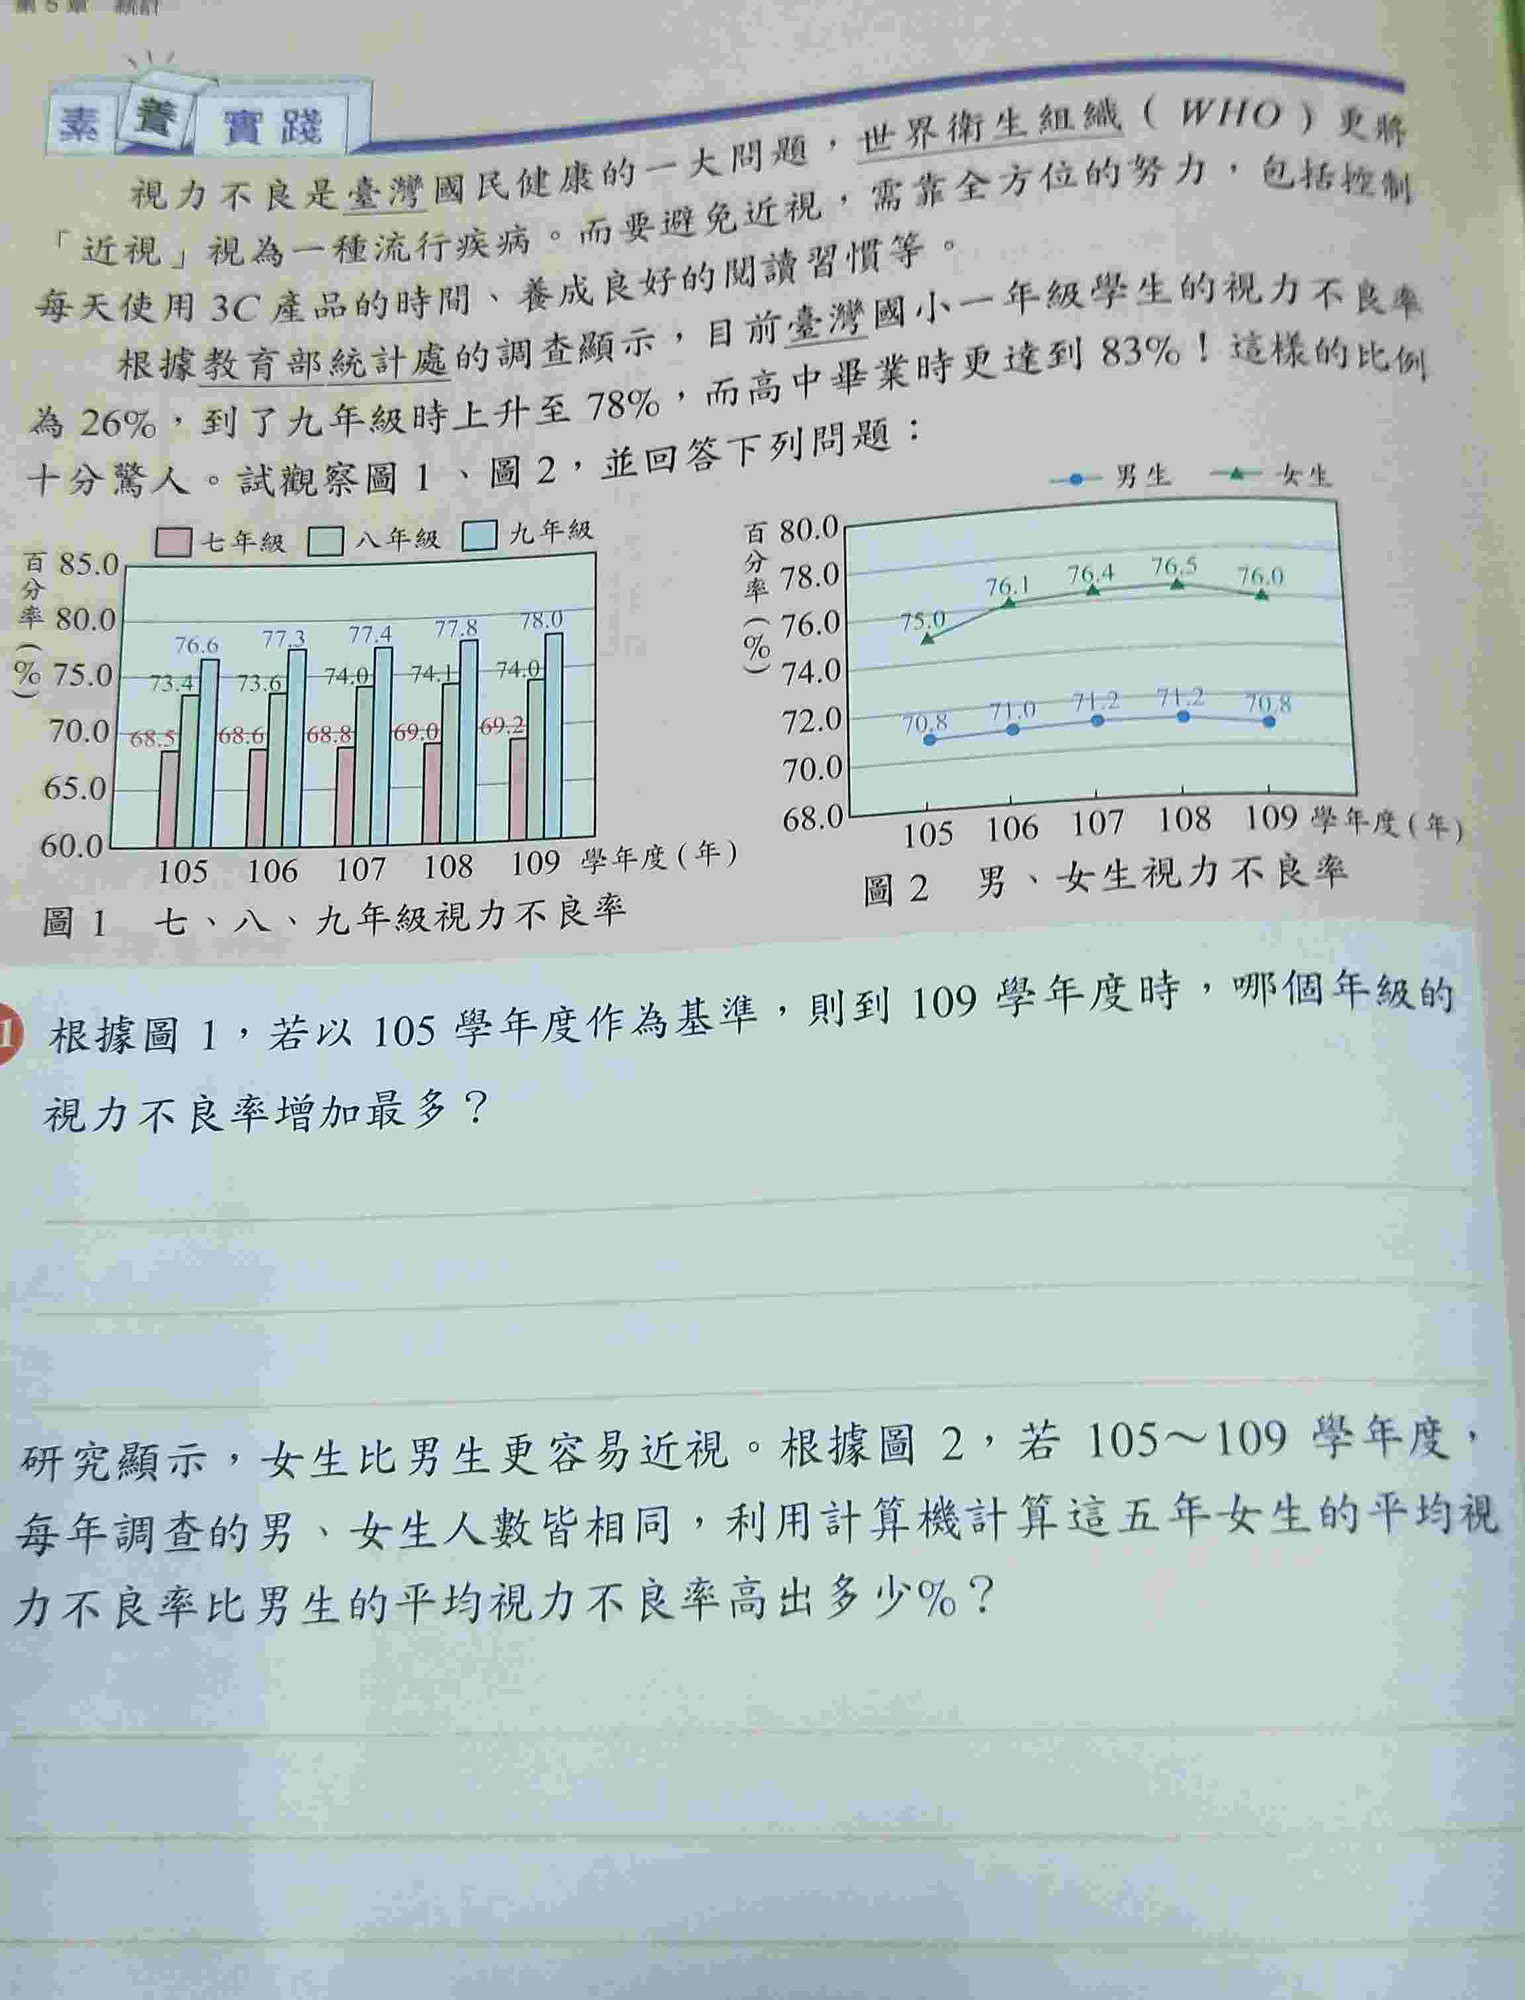 第5章 統計
素養實踐
視力不良是臺灣國民健康的一大問題，世界衛生組織（WHO）更將
「近視」視為一種流行疾病。而要避免近視，需靠全方位的努力，包括控制
每天使用3C產品的時間、養成良好的閱讀習慣等。
根據教育部統計處的調查顯示，目前臺灣國小一年級學生的視力不良率
為26%，到了九年級時上升至78%，而高中畢業時更達到83%！這樣的比例
十分驚人。試觀察圖1、圖2，並回答下列問題：
七年級 八年級 九年級
百分率(%)
85.0
80.0
75.0
70.0
65.0
60.0
68.5 73.4 76.6
68.6 73.6 77.3
68.8 74.0 77.4
69.0 74.1 77.8
69.2 74.0 78.0
105 106 107 108 109 學年度(年)
圖1 七、八、九年級視力不良率
男生 女生
百分率(%)
80.0
78.0
76.0
74.0
72.0
70.0
68.0
75.0 76.1 76.4 76.5 76.0
70.8 71.0 71.2 71.2 70.8
105 106 107 108 109 學年度(年)
圖2 男、女生視力不良率
1 根據圖1，若以105學年度作為基準，則到109學年度時，哪個年級的
視力不良率增加最多？
研究顯示，女生比男生更容易近視。根據圖2，若105～109學年度，
每年調查的男、女生人數皆相同，利用計算機計算這五年女生的平均視
力不良率比男生的平均視力不良率高出多少%？